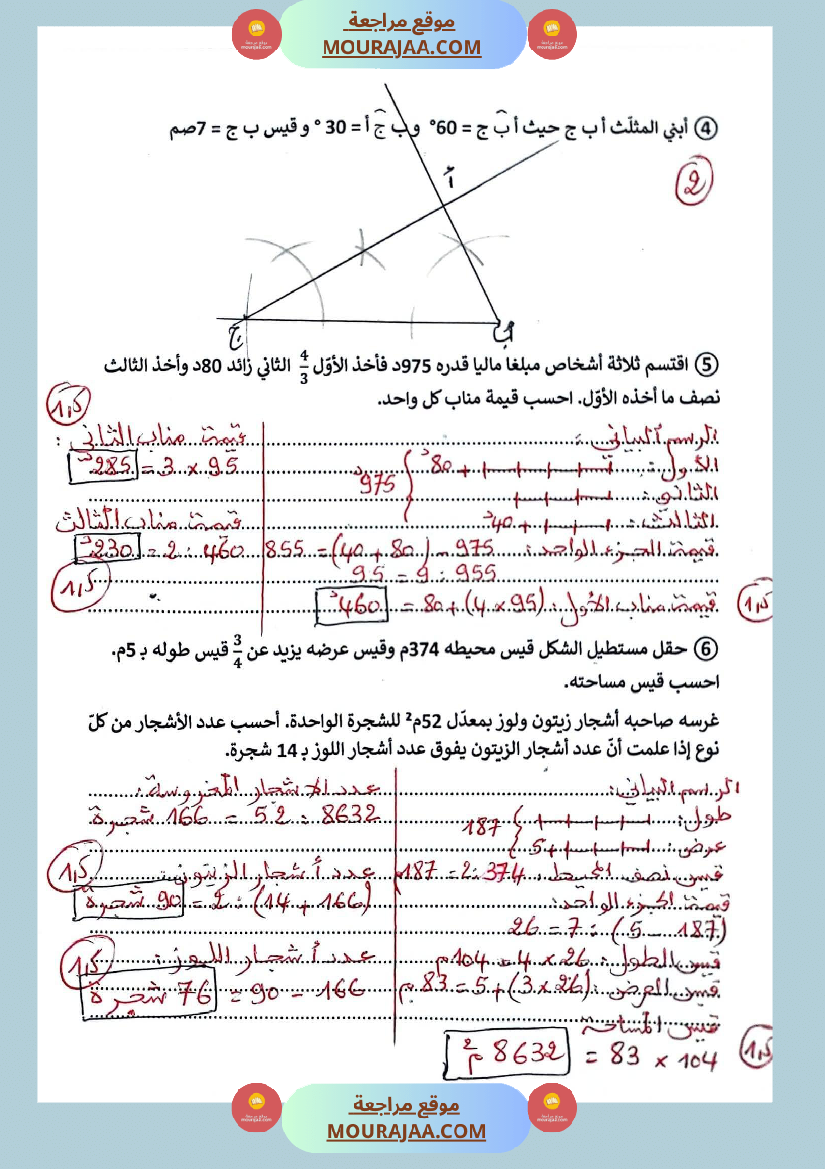 موقع مراجعة
MOURAJAA.COM
④ أبني المثلّث أ ب ج حيث أ ب̂ ج = 60° و ب ج̂ أ = 30 ° و قيس ب ج = 7صم
2
أ
ج
ب
⑤ اقتسم ثلاثة أشخاص مبلغا ماليا قدره 975د فأخذ الأوّل 4/3 الثاني زائد 80د وأخذ الثالث
نصف ما أخذه الأوّل. احسب قيمة مناب كل واحد.
1,5
الرسم البياني:
الأول: + 80د
الثاني:
975د
الثالث: + 40د
قيمة الجزء الواحد: 975 - (80 + 40) = 855
955 : 9 = 95
قيمة مناب الأول: (95 × 4) + 80 = 460د
1,5
قيمة مناب الثاني :
95 × 3 = 285د
قيمة مناب الثالث
460 : 2 = 230د
1,5
⑥ حقل مستطيل الشكل قيس محيطه 374م وقيس عرضه يزيد عن 3/4 قيس طوله بـ 5م.
احسب قيس مساحته.
غرسه صاحبه أشجار زيتون ولوز بمعدّل 52م² للشجرة الواحدة. أحسب عدد الأشجار من كلّ
نوع إذا علمت أنّ عدد أشجار الزيتون يفوق عدد أشجار اللوز بـ 14 شجرة.
الرسم البياني:
طول:
187
عرض: + 5
قيس نصف المحيط: 374 : 2 = 187م
قيمة الجزء الواحد:
(187 - 5) : 7 = 26
قيس الطول: 26 × 4 = 104م
قيس العرض: (26 × 3) + 5 = 83م
قيس المساحة
104 × 83 = 8632 م²
1,5
عدد الاشجار المغروسة:
8632 : 52 = 166 شجرة
عدد أشجار الزيتون:
1,5
(166 + 14) : 2 = 90 شجرة
عدد أشجار اللوز:
1,5
166 - 90 = 76 شجرة
موقع مراجعة
MOURAJAA.COM